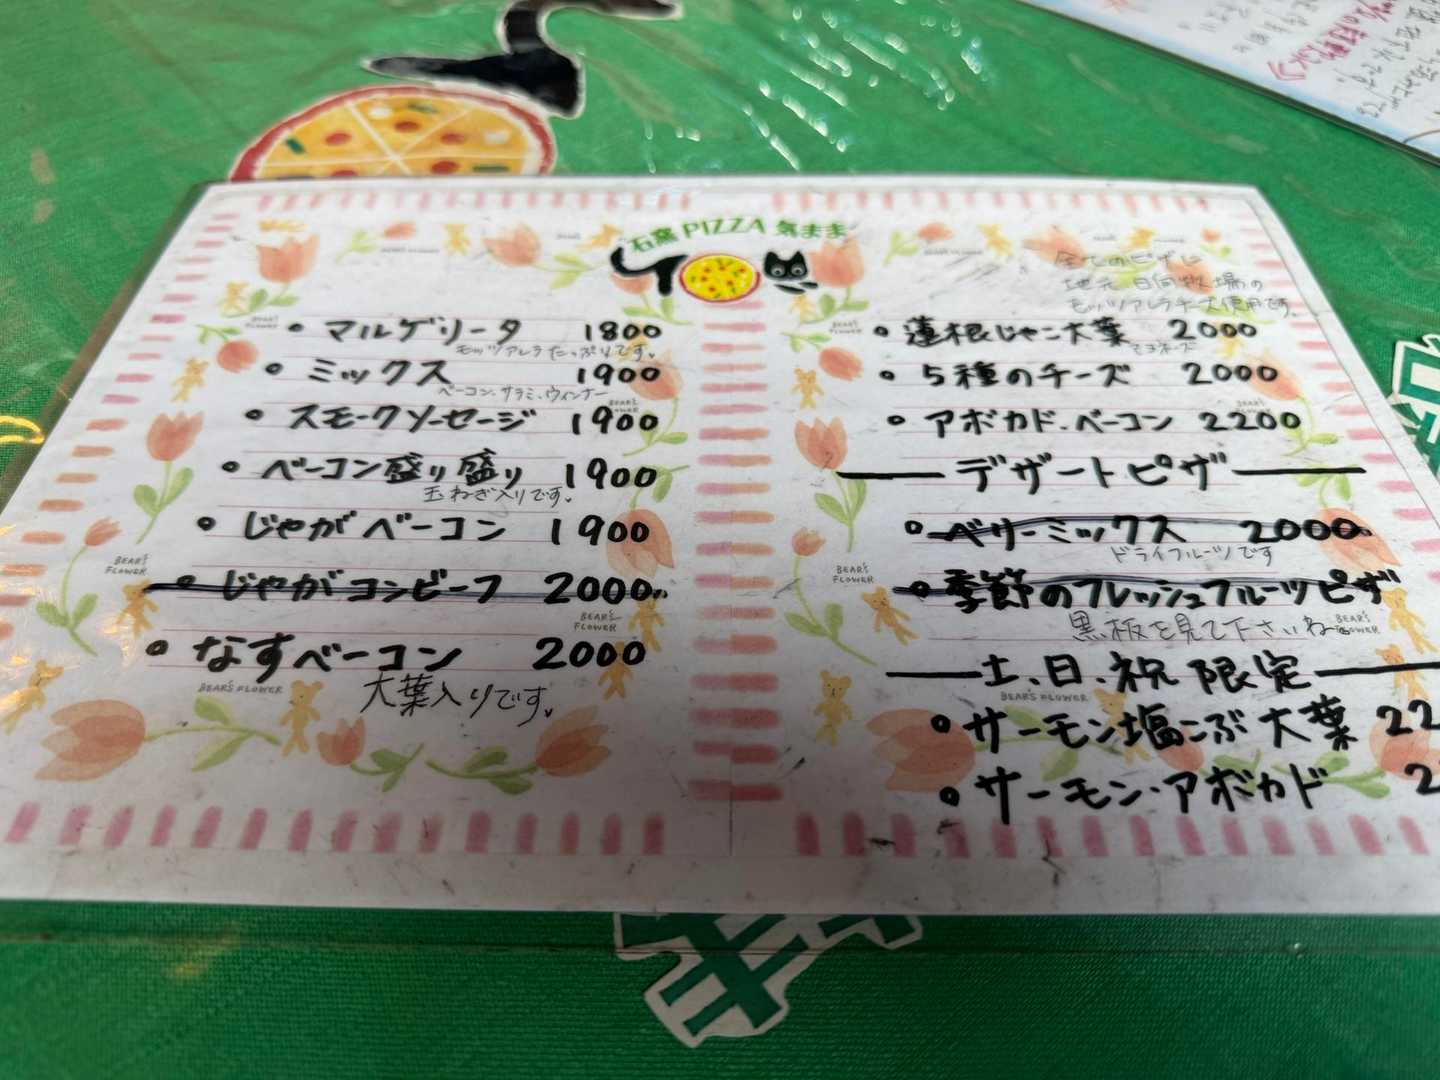 石窯 PIZZA 気まま
・マルゲリータ 1800
モッツアレラたっぷりです。
・ミックス 1900
ベーコン、サラミ、ウィンナー
・スモークソーセージ 1900
・ベーコン盛り盛り 1900
玉ねぎ入りです。
・じゃがベーコン 1900
・じゃがコンビーフ 2000
・なすベーコン 2000
大葉入りです。
全てのピザに
地元、日向牧場の
モッツアレラチーズ使用です。
・蓮根じゃこ大葉 2000
マヨネーズ
・5種のチーズ 2000
・アボカド、ベーコン 2200
デザートピザ
・ベリーミックス 2000
ドライフルーツです
・季節のフレッシュフルーツピザ
黒板を見て下さいね
土、日、祝 限定
・サーモン塩こぶ大葉 22
・サーモン・アボカド 2
BEAR'S FLOWER